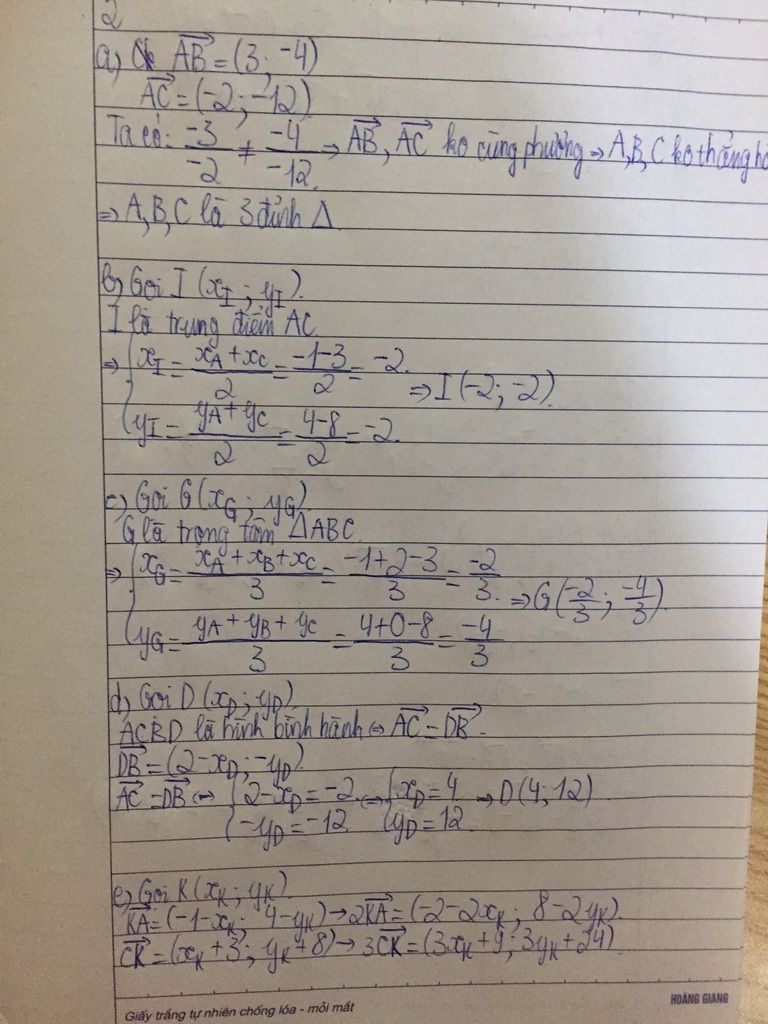 2
a) AB = (3; -4)
AC = (-2; -12)
Ta có: -3/-2 ≠ -4/-12 → AB, AC ko cùng phương → A, B, C ko thẳng
⇒ A, B, C là 3 đỉnh Δ
b) Gọi I (x_I ; y_I)
I là trung điểm AC
⇒ { x_I = (x_A + x_C)/2 = (-1-3)/2 = -2
⇒ I (-2; -2)
y_I = (y_A + y_C)/2 = (4-8)/2 = -2
c) Gọi G (x_G ; y_G)
G là trọng tâm ΔABC
⇒ { x_G = (x_A + x_B + x_C)/3 = (-1+2-3)/3 = -2/3
⇒ G (-2/3 ; -4/3)
y_G = (y_A + y_B + y_C)/3 = (4+0-8)/3 = -4/3
d) Gọi D (x_D ; y_D)
ACBD là hình bình hành ⇔ AC = DB
DB = (2-x_D ; -y_D)
AC = DB ⇔ { 2-x_D = -2 ⇔ { x_D = 4 → D (4; 12)
-y_D = -12 y_D = 12
e) Gọi K (x_K ; y_K)
KA = (-1-x_K ; 4-y_K) → 2KA = (-2-2x_K ; 8-2y_K)
CK = (x_K+3 ; y_K+8) → 3CK = (3x_K+9 ; 3y_K+24)
Giấy trắng tự nhiên chống lóa - mỏi mắt
HOÀNG GIANG